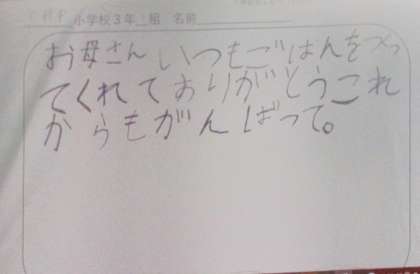 小学校３年 組 名前
お母さんいつもごはんをつくっ
てくれておりがとうこれ
からもがんばって。